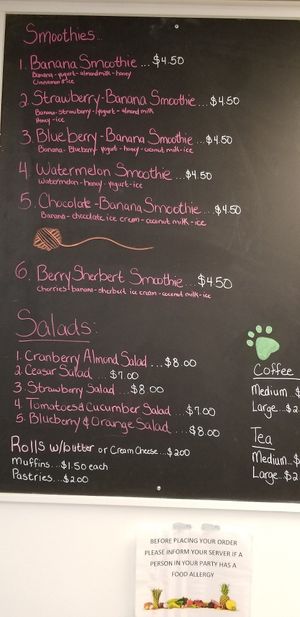 Smoothies..
1. Banana Smoothie ... $4.50
Banana - yogurt - almond milk - honey
Cinnamon & ice
2. Strawberry - Banana Smoothie ... $4.50
Banana - strawberry - yogurt - almond milk
Honey - ice
3. Blueberry - Banana Smoothie ... $4.50
Banana - Blueberry yogurt - honey - coconut milk - ice
4. Watermelon Smoothie ... $4.50
Watermelon - honey - yogurt - ice
5. Chocolate - Banana Smoothie ... $4.50
Banana - chocolate ice cream - coconut milk - ice
6. Berry Sherbert Smoothie ... $4.50
Cherries - banana - sherbert ice cream - coconut milk - ice
Salads:
1. Cranberry Almond Salad ... $8.00
2. Ceasar Salad ... $7.00
3. Strawberry Salad ... $8.00
4. Tomatoes & Cucumber Salad ... $7.00
5. Blueberry & Orange Salad ... $8.00
Rolls w/butter or Cream Cheese ... $2.00
Muffins .. $1.50 each
Pastries .. $2.00
Coffee
Medium .. $
Large ... $2
Tea
Medium .. $
Large .. $2
BEFORE PLACING YOUR ORDER
PLEASE INFORM YOUR SERVER IF A
PERSON IN YOUR PARTY HAS A
FOOD ALLERGY